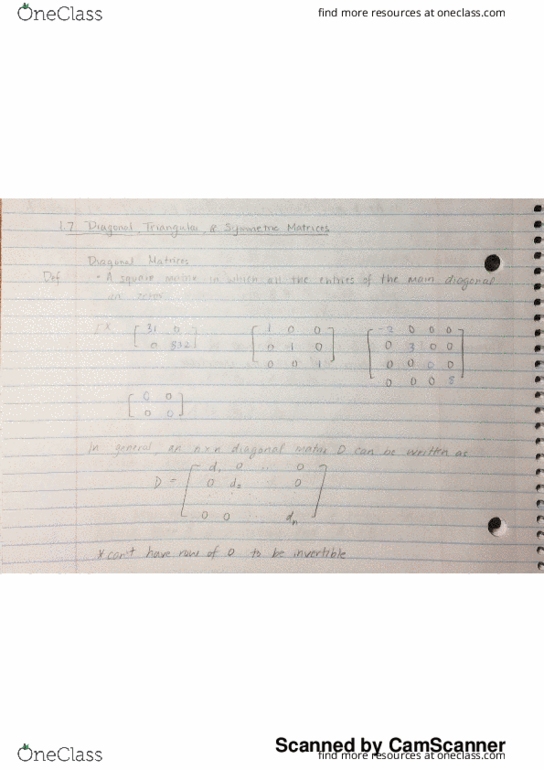 OneClass
find more resources at oneclass.com
1.7 Diagonal, Triangular, & Symmetric Matrices
Diagonal Matrices
Def • A square matrix in which all the entries of the main diagonal
are zero
Ex [ 31 0 [ 1 0 0 [ -2 0 0 0
0 832 ] 0 1 0 0 3 0 0
0 0 1 ] 0 0 0 0
0 0 0 8 ]
[ 0 0
0 0 ]
In general, an nxn diagonal matrix D can be written as
D = [ d₁ 0 .. 0
0 d₂ 0
0 0 dₙ ]
* can't have rows of 0 to be invertible
Scanned by CamScanner
OneClass
find more resources at oneclass.com